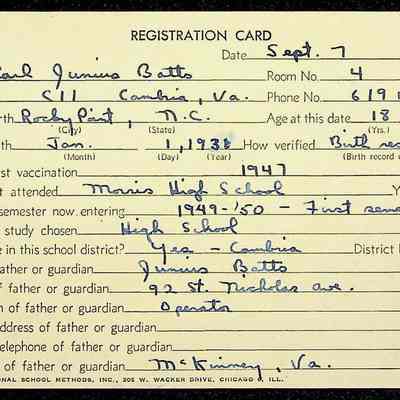 REGISTRATION CARD
Date Sept. 7
Earl Junius Batts Room No. 4
Cambria, Va. Phone No. 619
rth Rocky Point, N.C. Age at this date 18
(City) (State) (Yrs.)
th Jan. 1, 1938 How verified Birth rec
(Month) (Day) (Year) (Birth record
st vaccination 1947
t attended Morris High School Y
semester now entering 1949-'50 - First seme
study chosen High School
e in this school district? Yes - Cambria District
ather or guardian Junius Batts
f father or guardian 92 St. Nicholas ave.
n of father or guardian Operator
ddress of father or guardian
elephone of father or guardian
of father or guardian McKinney, Va.
ONAL SCHOOL METHODS, INC., 205 W. WACKER DRIVE, CHICAGO 6, ILL.